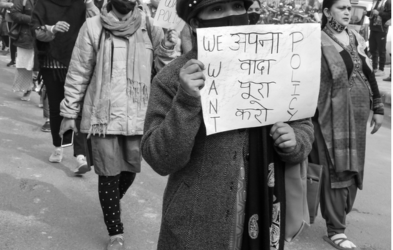 WE अपना
WANT वादा
पूरा
करो
POLICY